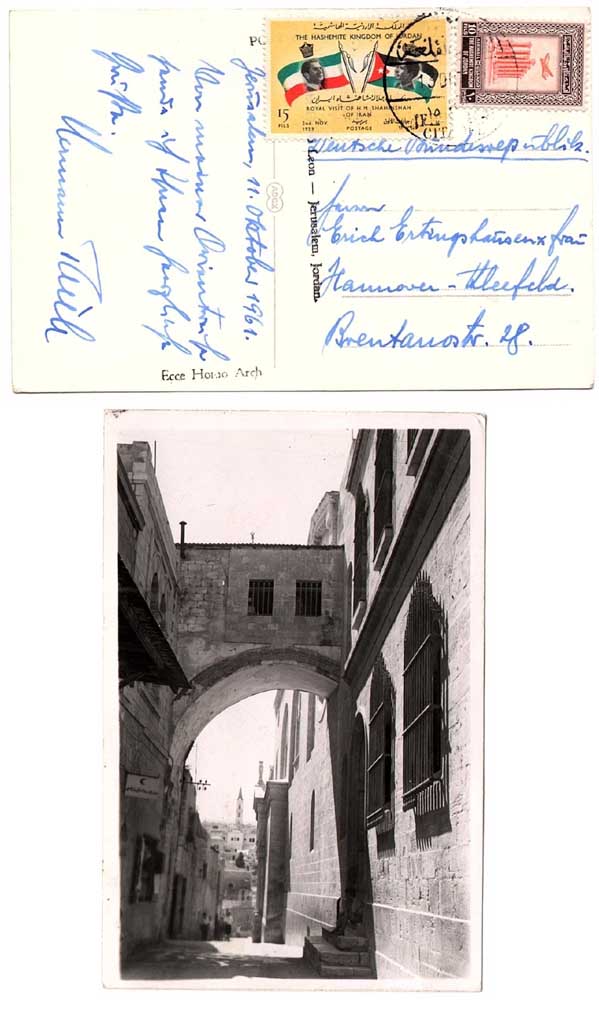 Jerusalem, 11. Oktober 1961.
Von meiner Orientreise
sende ich Ihnen herzliche
Grüße.
Hermann
Ecce Homo Arch
Leon — Jerusalem, Jordan.
المملكة الأردنية الهاشمية
THE HASHEMITE KINGDOM OF JORDAN
ROYAL VISIT OF H.M. SHAHINSHAH
OF IRAN
15
FILS
2nd NOV.
1959
POSTAGE
10
FILS
Deutsche Bundesrepublik.
Herrn
Erich Ertingshausen & Frau
Hannover-Kleefeld.
Brentanostr. 28.